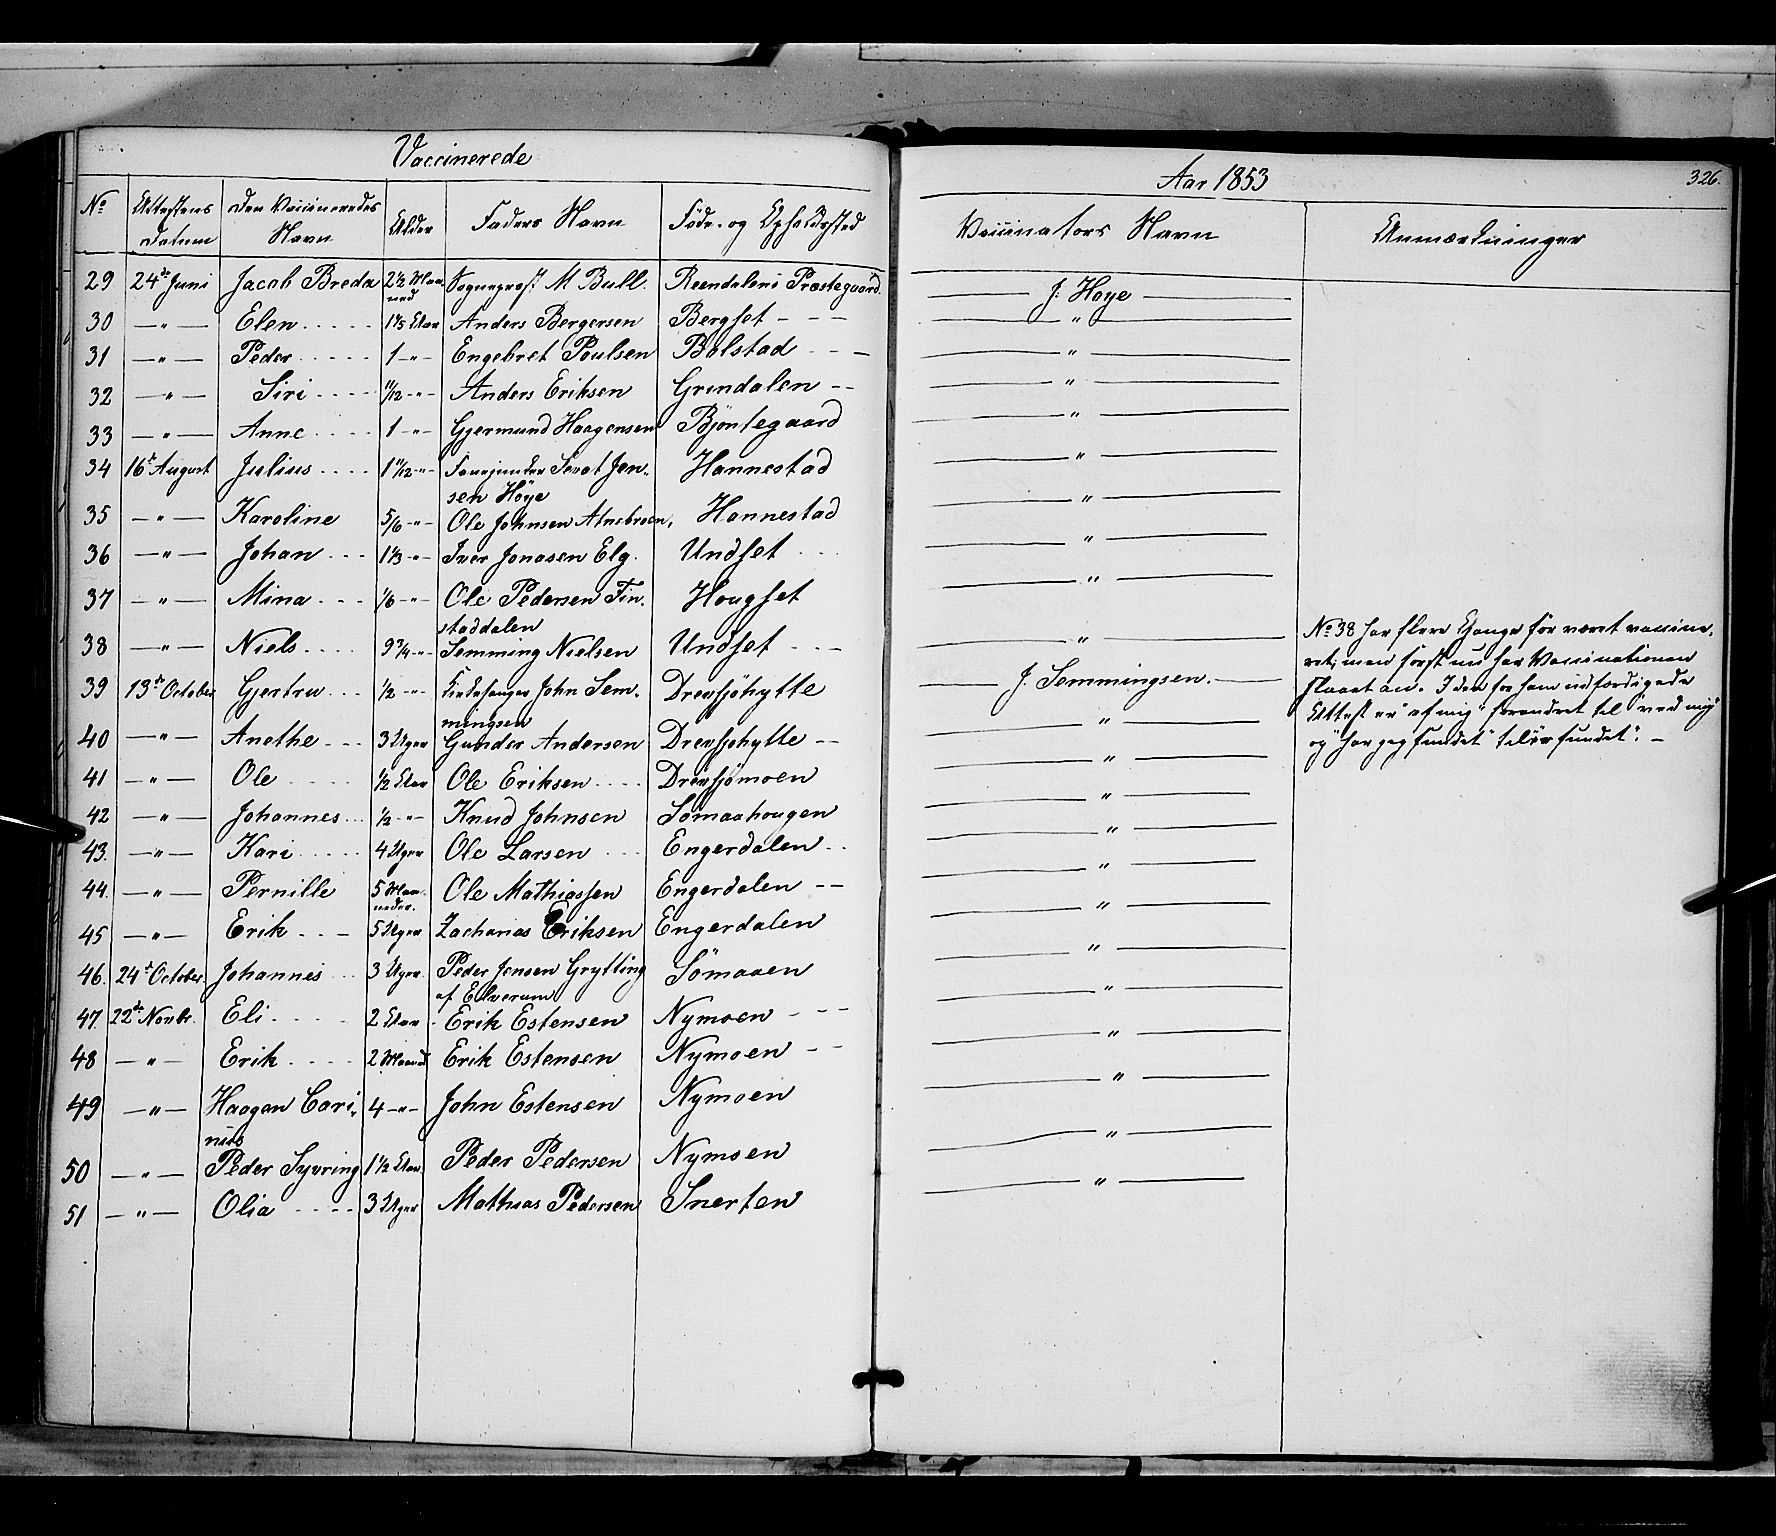 Vaccinerede
No Attestens Datum Den Vaccineredes Navn Alder Faders Navn Føde- og Opholdssted
29 24de Juni Jacob Breda 2 1/2 Maa- Sogneprest M Bull. Reendalens Præstegaard.
ned
30 — " — Elen 1 1/5 Aar Anders Bergersen Bergset
31 — " — Peder 1 — " — Engebret Poulsen Bolstad
32 — " — Siri 11/12 — " — Anders Eriksen Grindalen
33 — " — Anne 1 — " — Gjermund Haagensen Bjöntegaard
34 16de August Julius 1 11/12 — " — Jen- Hannestad
sen Höye
35 — " — Karoline 5/6 — " — Ole Johnsen Atnebroen, Hannestad
36 — " — Johan 1 1/3 — " — Iver Jonasen Elg. Undset
37 — " — Mina 1/6 — " — Ole Pedersen Fin- Hougset
staddalen
38 — " — Niels 9 3/4 — " — Semming Nielsen Undset
39 13de October Gjertru 1/2 — " — Kirkesanger John Sem- Drevsjöhytte
mingsen
40 — " — Anethe 3 Uger Gunder Andersen Drevsjöhytte
41 — " — Ole 1/2 Aar Ole Eriksen Drevsjömoen
42 — " — Johannes 1/2 — " — Knud Johnsen Sömaahougen
43. — " — Kari 4 Uger Ole Larsen Engerdalen
44. — " — Pernille 5 Maa- Ole Mathiassen Engerdalen
neder.
45 — " — Erik 5 Uger Zacharias Eriksen Engerdalen
46. 24de October. Johannes 3 Uger Peder Jensen Grytting Sömaaen
af Elverum
47 22de Novbr. Eli 2 Aar Erik Estensen Nymoen
48 — " — Erik 2 Maaned Erik Estensen Nymoen
49 — " — Haagen Cari- 4 — " — John Estensen Nymoen
nus
50 — " — Peder Syvring 1 1/2 Aar Peder Pedersen Nymoen
51 — " — Olia 3 Uger Mathias Pedersen Snerten
Aar 1853
326.
Vaccinators Navn Anmærkninger
J. Høye
"
"
"
"
"
"
"
"
"
J. Semmingsen.
"
"
"
"
"
"
"
"
"
"
"
"
No 38 har flere Gange før været vaccine-
ret; men først nu har Vaccinationen
slaaet an. I den for ham udfærdigede
Attest er "af mig" forandret til "ved mig"
og "har jeg fundet" til "er fundet". —